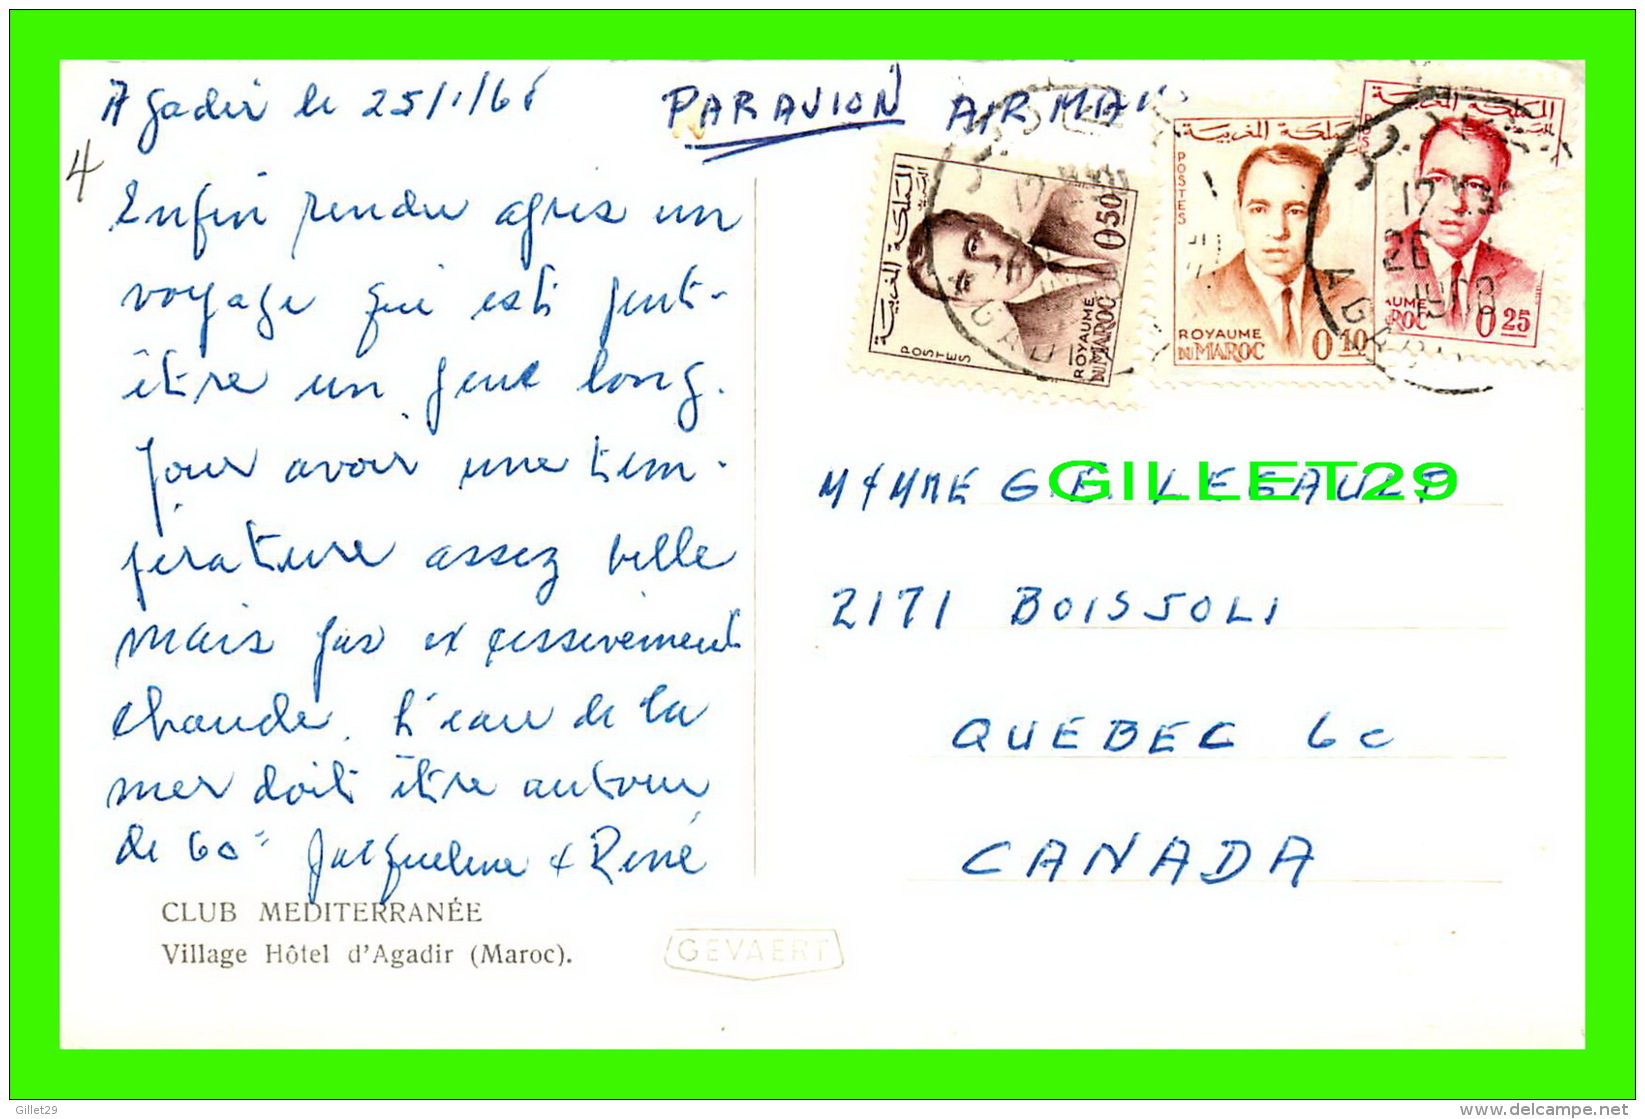 Agadir le 25/1/68
PAR AVION AIR MAIL
4
Enfin rendu après un
voyage qui est peut-
être un peu long.
Pour avoir une tem-
pérature assez belle
mais pas excessivement
chaude. L'eau de la
mer doit être autour
de 60° Jacqueline & René
CLUB MEDITERRANÉE
Village Hôtel d'Agadir (Maroc).
GEVAERT
المملكة المغربية
POSTES
ROYAUME
DU MAROC
0.50
المملكة المغربية
POSTES
ROYAUME
DU MAROC 0.10
المملكة المغربية
POSTES
ROYAUME
DU MAROC 0.25
17
26
1968
AGADIR
M & MME G.E. LEGAULT
GILLET29
2171 BOISJOLI
QUEBEC 6c
CANADA
Gillet29
www.delcampe.net